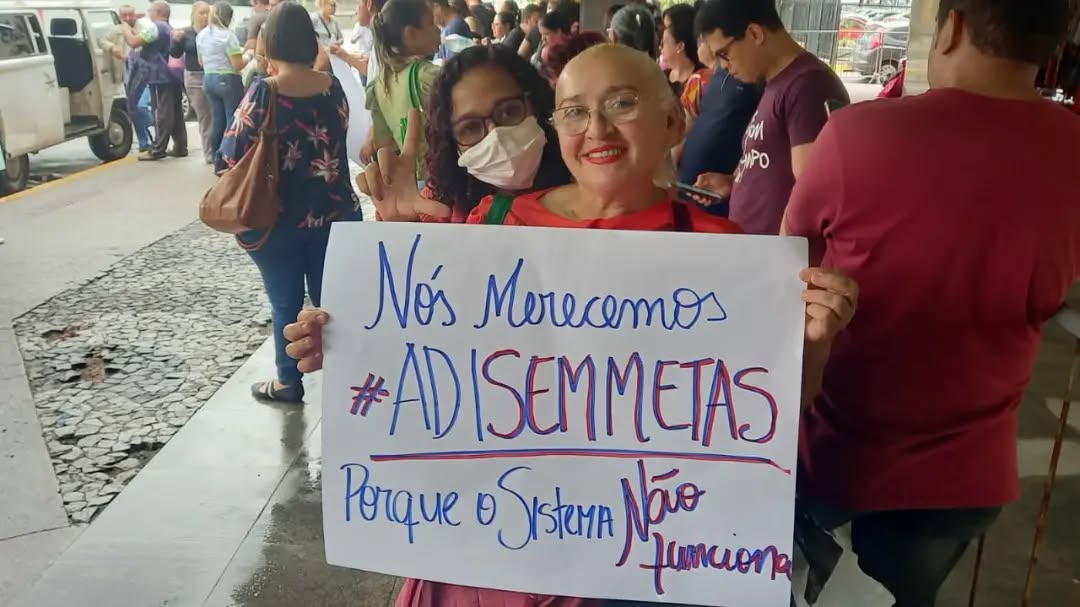 Nós Merecemos
#ADISEMMETAS
Porque o Sistema Não
funciona